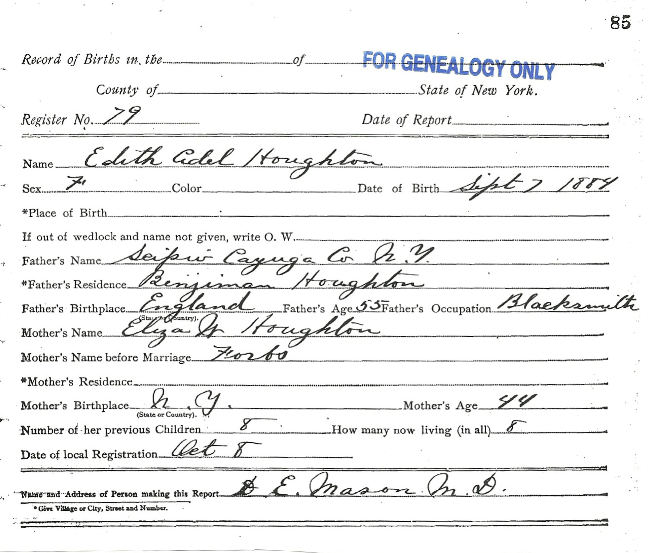 85
Record of Births in the of
FOR GENEALOGY ONLY
County of State of New York.
Register No. 79 Date of Report
Name Edith Adel Houghton
Sex F Color Date of Birth Sept 7 1884
*Place of Birth
If out of wedlock and name not given, write O. W.
Father's Name Scipio Cayuga Co N.Y.
*Father's Residence Benjiman Houghton
Father's Birthplace England Father's Age 55 Father's Occupation Blacksmith
(State or Country).
Mother's Name Eliza W Houghton
Mother's Name before Marriage Forbs
*Mother's Residence
Mother's Birthplace N.Y. Mother's Age 44
(State or Country).
Number of her previous Children 8 How many now living (in all) 8
Date of local Registration Oct 8
Name and Address of Person making this Report D E. Mason M.D.
*Give Village or City, Street and Number.